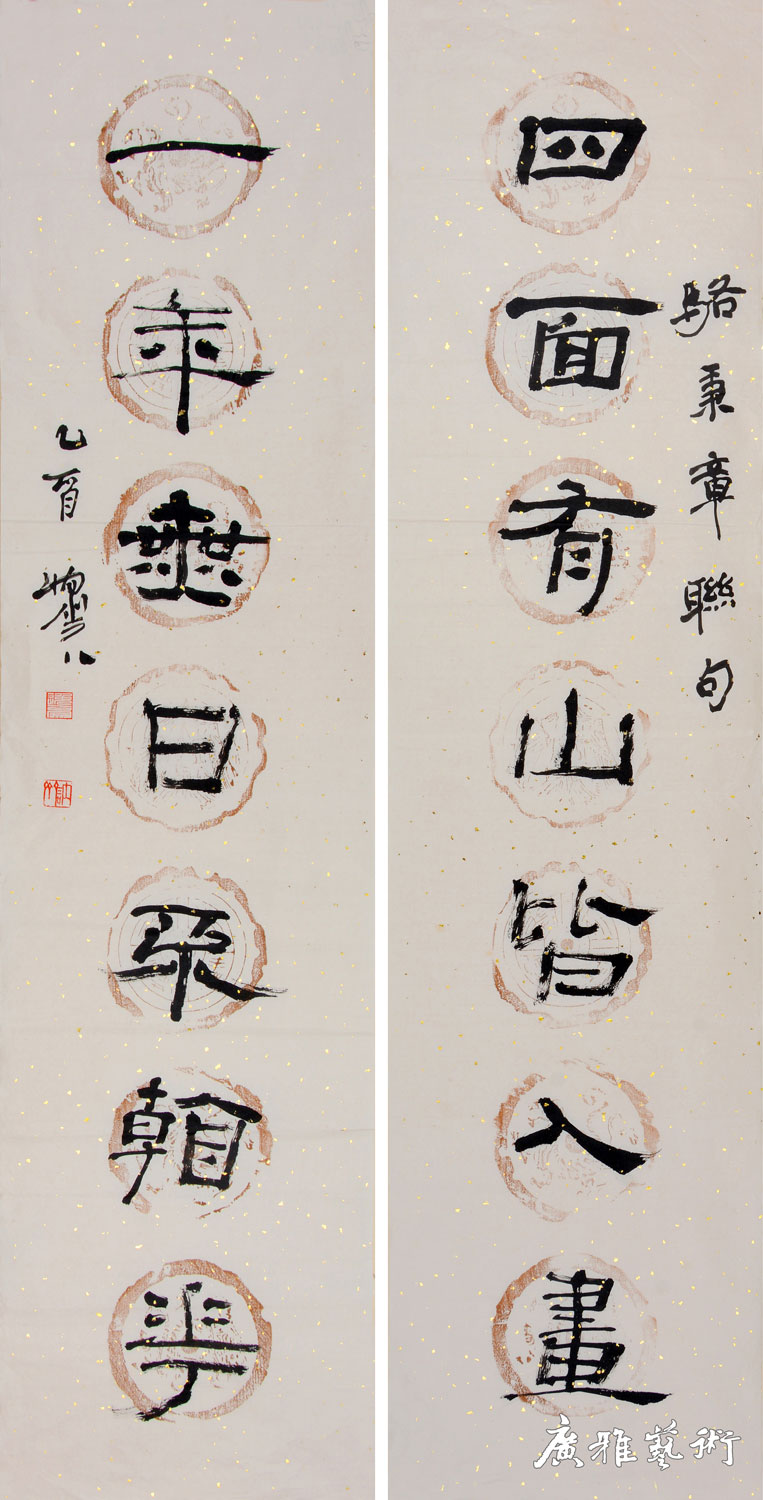 駱秉章聯句
四面有山皆入畫
一年無日不看華
乙酉
廣雅藝術